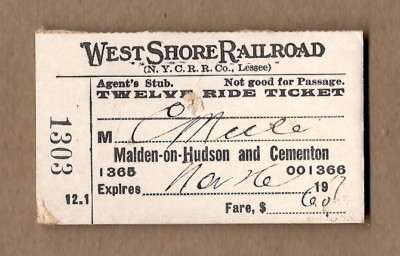 WEST SHORE RAILROAD
(N. Y. C. R. R. Co., Lessee)
Agent's Stub. Not good for Passage.
TWELVE RIDE TICKET
1303
M
Malden-on-Hudson and Cementon
1365 001366
Expires Nov 26 191
12.1
Fare, $ 60